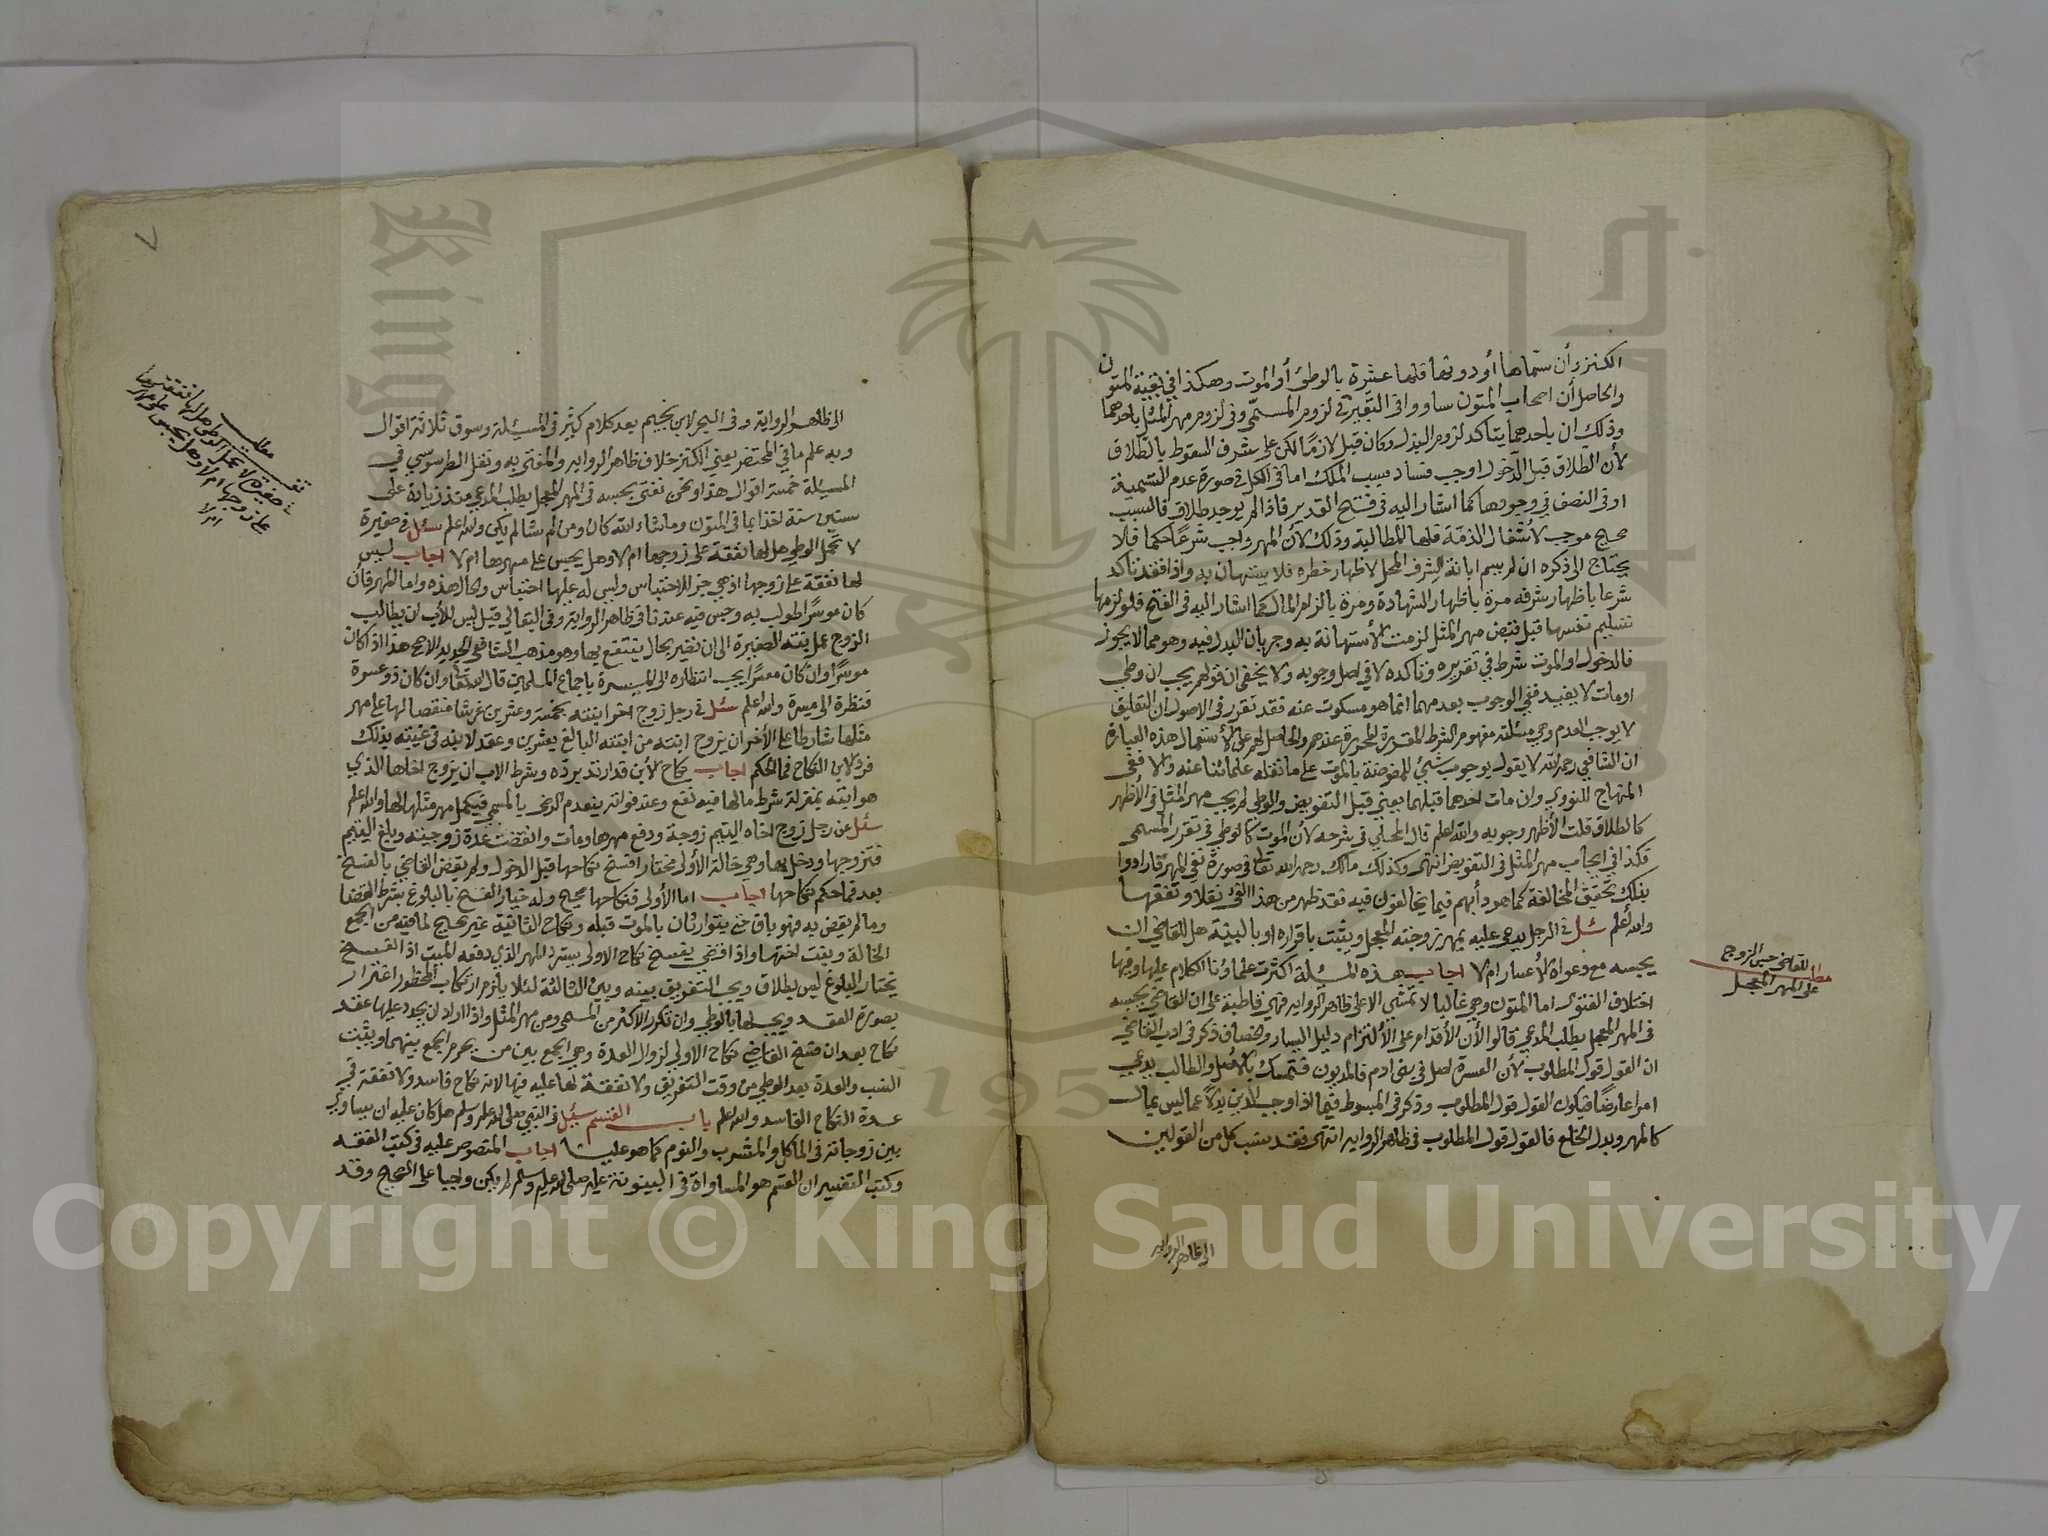 الكنز وأن سماها أو دونها فلها عشرة بالوطئ أو الموت وهكذا في بقية المتون
والحاصل أن اصحاب المتون ساووا في التعبير في لزوم المسمّى وفي لزوم مهر المثل باحدهما
وذلك ان باحدهما يتأكد لزوم البدل وكان قبل لازمًا لكن على شرف السقوط بالطلاق
لأن الطلاق قبل الدّخول اوجب فساد سبب الملك اما في الكل في صورة عدم التسمية
او في النصف في وجودها كما اشار اليه في فتح القدير فاذا لم يوجد طلاق فالسبب
صحيح موجب لأشغال الذمّة فلها المطالبة وذلك لأن المهر واجب شرعًا حكما فلا
يحتاج الى ذكره ان لم يسم ابانة لشرف المحل لاظهار خطره فلا يستهان به واذا فقد تأكد
شرعا باظهار شرفه مرة باظهار الشهادة ومرة بالزام المال كما اشار اليه في الفتح فلو لزمها
تسليم نفسها قبل قبض مهر المثل لزمت الأستهانة به وجريان البدل فيه وهو مما لا يجوز
فالدخول او الموت شرط في تقريره وتأكده لا في اصل وجوبه ولا يخفى ان قولهم يجب ان وطي
او مات لا يفيد نفي الوجوب بعدمهما انما هو مسكوت عنه فقد تقرر في الاصول ان التعليق
لا يوجب العدم وهي مسئلة مفهوم الشرط المقررة المحررة عندهم والحاصل لهم على الأستعمال هذه العبارة
ان الشافعي رحمه الله لا يقول بوجوب شيئ للمفوضة بالموت على ما نقله علمائنا عنه والا ففي
المنهاج للنووي وان مات احدهما قبلهما يعني قبل التفويض والوطي لم يجب مهر المثل في الأظهر
كالطلاق قلت الأظهر وجوبه والله اعلم قال المحلي في شرحه لأن الموت كالوطي في تقرر المسمى
فكذا في ايجاب مهر المثل في التفويض انتهى وكذلك مالك رحمه الله تعالى في صورة نفي المهر فارادوا
بذلك تحقيق المخالفة كما هو دأبهم فيما يخالفون فيه فقد ظهر من هذا نقلا وتفقها
والله أعلم سئل في الرجل يدعى عليه بمهر زوجته المعجل ويثبت باقراره او بالبينة هل للقاضي ان
يحبسه مع دعواه الأعسار ام لا اجاب هذه المسئلة اكثرت علماؤنا الكلام عليها وفيها
اختلاف الفتوى اما المتون وهي غالبا لا تمشي الا على ظاهر الرواية فهي قاطبة على ان القاضي يحبسه
في المهر المعجل بطلب المدعي قالوا لأن الأقدام على الألتزام دليل اليسار والخصاف ذكر في ادب القاضي
ان القول قول المطلوب لأن العسرة اصل في بني ادم فالمديون تمسك بالأصل والطالب يدعي
امرا عارضًا فيكون القول قول المطلوب وذكر في المبسوط فيما اذا وجب الدين بدلا عما ليس بمال
كالمهر وبدل الخلع فالقول قول المطلوب في ظاهر الرواية انتهى فقد نسب كل من القولين
الى ظاهر الرواية
مطلب للقاضي حبس الزوج
على المهر المعجل
٧
مطلب
صغيرة لا تحمل الوطي هل لها نفقة
على زوجها ام لا وهل يحبس على مهرها
ام لا
الى ظاهر الرواية وفي البحر لابن نجيم بعد كلام كثير في المسئلة وسوق ثلاثة اقوال
وبه علم ما في المختصر يعني الكنز خلاف ظاهر الرواية والمفتى به ونقل الطرسوسي في
المسئلة خمسة اقوال هذا ونحن نفتي بحبسه في المهر المعجل بطلب المدعي منذ زيادة على
ستين سنة اخذا بما في المتون وما شاء الله كان ومن لم يشا لم يكن والله اعلم سئل في صغيرة
لا تحمل الوطي هل لها نفقة على زوجها ام لا وهل يحبس على مهرها ام لا اجاب ليس
لها نفقة على زوجها اذ هي جزاء الاحتباس وليس له عليها احتباس والحال هذه واما المهر فان
كان موسرًا طولب به وحبس فيه عندنا في ظاهر الرواية وفي البقالي قيل ليس للأب ان يطالب
الزوج بمهر بنته الصغيرة الى ان تصير بحال ينتفع بها وهو مذهب الشافعي الجديد الاصح هذا اذا كان
موسرًا وان كان معسرًا يجب انتظاره الى الميسرة باجماع المسلمين قال الله تعالى وان كان ذو عسرة
فنظرة الى ميسرة والله اعلم سئل في رجل زوج اخر ابنته بخمسة وعشرين غرشا منقصا لها عن مهر
مثلها شارطا على الأخر ان يزوج ابنته من ابنته البالغ بعشرين وعقد لابنه في غيبته بذلك
فرد الابن النكاح فما الحكم اجاب نكاح الأبن قد ارتد برده وبشرط الاب ان يتزوج اخاها الذي
هو ابنه بمنزلة شرط ما لها فيه نفع وعند فواته ينعدم الرضى بالمسمى فيكمل مهر مثلها لها والله اعلم
سئل عن رجل زوج اخاه اليتيم زوجة ودفع مهرها ومات وانقضت عدة زوجته وبلغ اليتيم
فتزوجها ودخل بها وهي خالة الأولى فاختار فسخ نكاحها قبل الدخول ولم يقض القاضي بالفسخ
بعد فما حكم نكاحها اجاب اما الأولى فنكاحها صحيح وله خيار الفسخ بالبلوغ بشرط القضا
وما لم يقض به فهو باق حتى يتوارثان بالموت قبله ونكاح الثانية غير صحيح لما فيه من الجمع
الخالة وبنت اختها واذا قضي بفسخ نكاح الاولى يسترد المهر الذي دفعه الميت اذ الفسخ
بخيار البلوغ ليس بطلاق ويجب التفريق بينه وبين الثالثة لئلا يلزم ارتكاب المحظور اغترار
بصورة العقد ويجب لها بالوطي وان تكرر الأكثر من المسمى ومن مهر المثل واذا اراد ان يجدد عليها عقد
نكاح بعد ان فسخ القاضي نكاح الاولى لزوال العدة وهي الجمع بين من يحرم الجمع بينهما ويثبت
النسب والعدة بعد الوطي من وقت التفريق ولا نفقة لها عليه فيها لانه نكاح فاسد ولا نفقة في
عدة النكاح الفاسد والله اعلم باب القسم سئل في النبي صلى الله عليه وسلم هل كان عليه ان يساوي
بين زوجاته في المأكل والمشرب والنوم كما هو علينا اجاب المنصوص عليه في كتب الفقه
وكتب التفسير ان القسم هو المساواة في البيتوتة عليه صلى الله عليه وسلم لم يكن واجبا على الصحيح وقد
Copyright © King Saud University